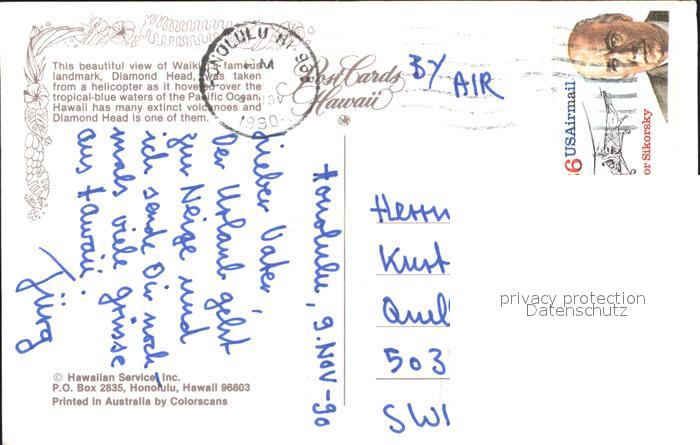 This beautiful view of Waikiki's famous
landmark, Diamond Head, was taken
from a helicopter as it hovered over the
tropical-blue waters of the Pacific Ocean.
Hawaii has many extinct volcanoes and
Diamond Head is one of them.
HONOLULU HI 968
PM
NOV
1990
Post Cards
Hawaii
BY AIR
USAirmail
or Sikorsky
Honolulu, 9. Nov-90
Lieber Vater,
Der Urlaub geht
zur Neige und
ich sende Dir noch-
mals viele Grüsse
aus Hawaii.
Jürg
Herrn
Kurt
Quel
503
SWI
privacy protection
Datenschutz
© Hawaiian Service, Inc.
P.O. Box 2835, Honolulu, Hawaii 96803
Printed in Australia by Colorscans